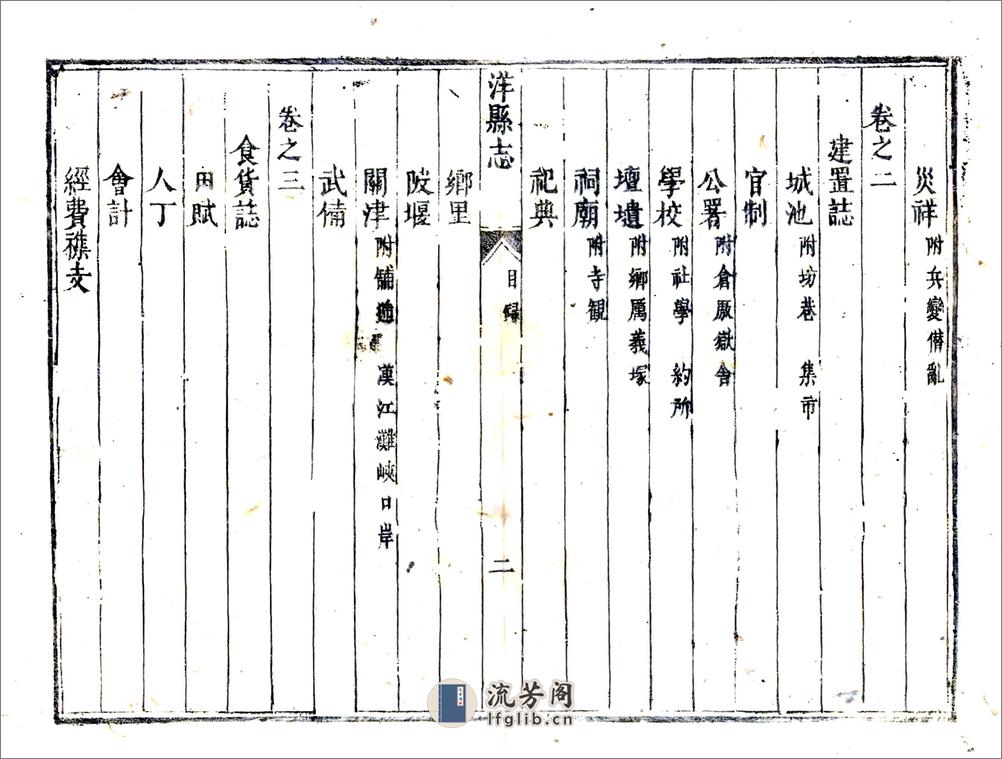 災祥附兵變僭亂
卷之二
建置誌
城池附坊巷 集市
官制
公署附倉厫獄舍
學校附社學 約所
壇壝附鄉厲義塚
祠廟附寺観
祀典
洋縣志
目録
二
鄉里
陂堰
關津附舖逓 漢江灘峽口岸
武備
卷之三
食貨誌
田賦
人丁
會計
經費襍支
流芳阁
lfglib.cn